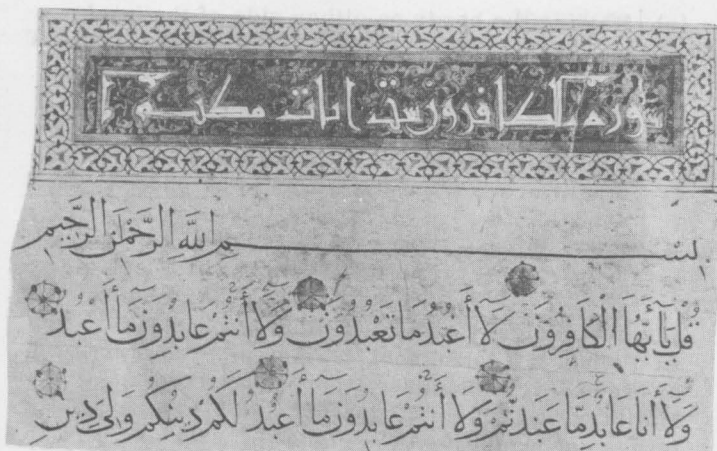 سورة الكافرون ست ايات مكية
بِسْمِ اللَّهِ الرَّحْمَٰنِ الرَّحِيمِ
قُلْ يَا أَيُّهَا الْكَافِرُونَ لَا أَعْبُدُ مَا تَعْبُدُونَ وَلَا أَنتُمْ عَابِدُونَ مَا أَعْبُدُ
وَلَا أَنَا عَابِدٌ مَّا عَبَدتُّمْ وَلَا أَنتُمْ عَابِدُونَ مَا أَعْبُدُ لَكُمْ دِينُكُمْ وَلِيَ دِينِ